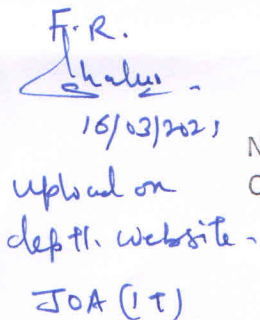 F.R.
16/03/2021
N
upload on
C
deptt. website -
JOA (IT)